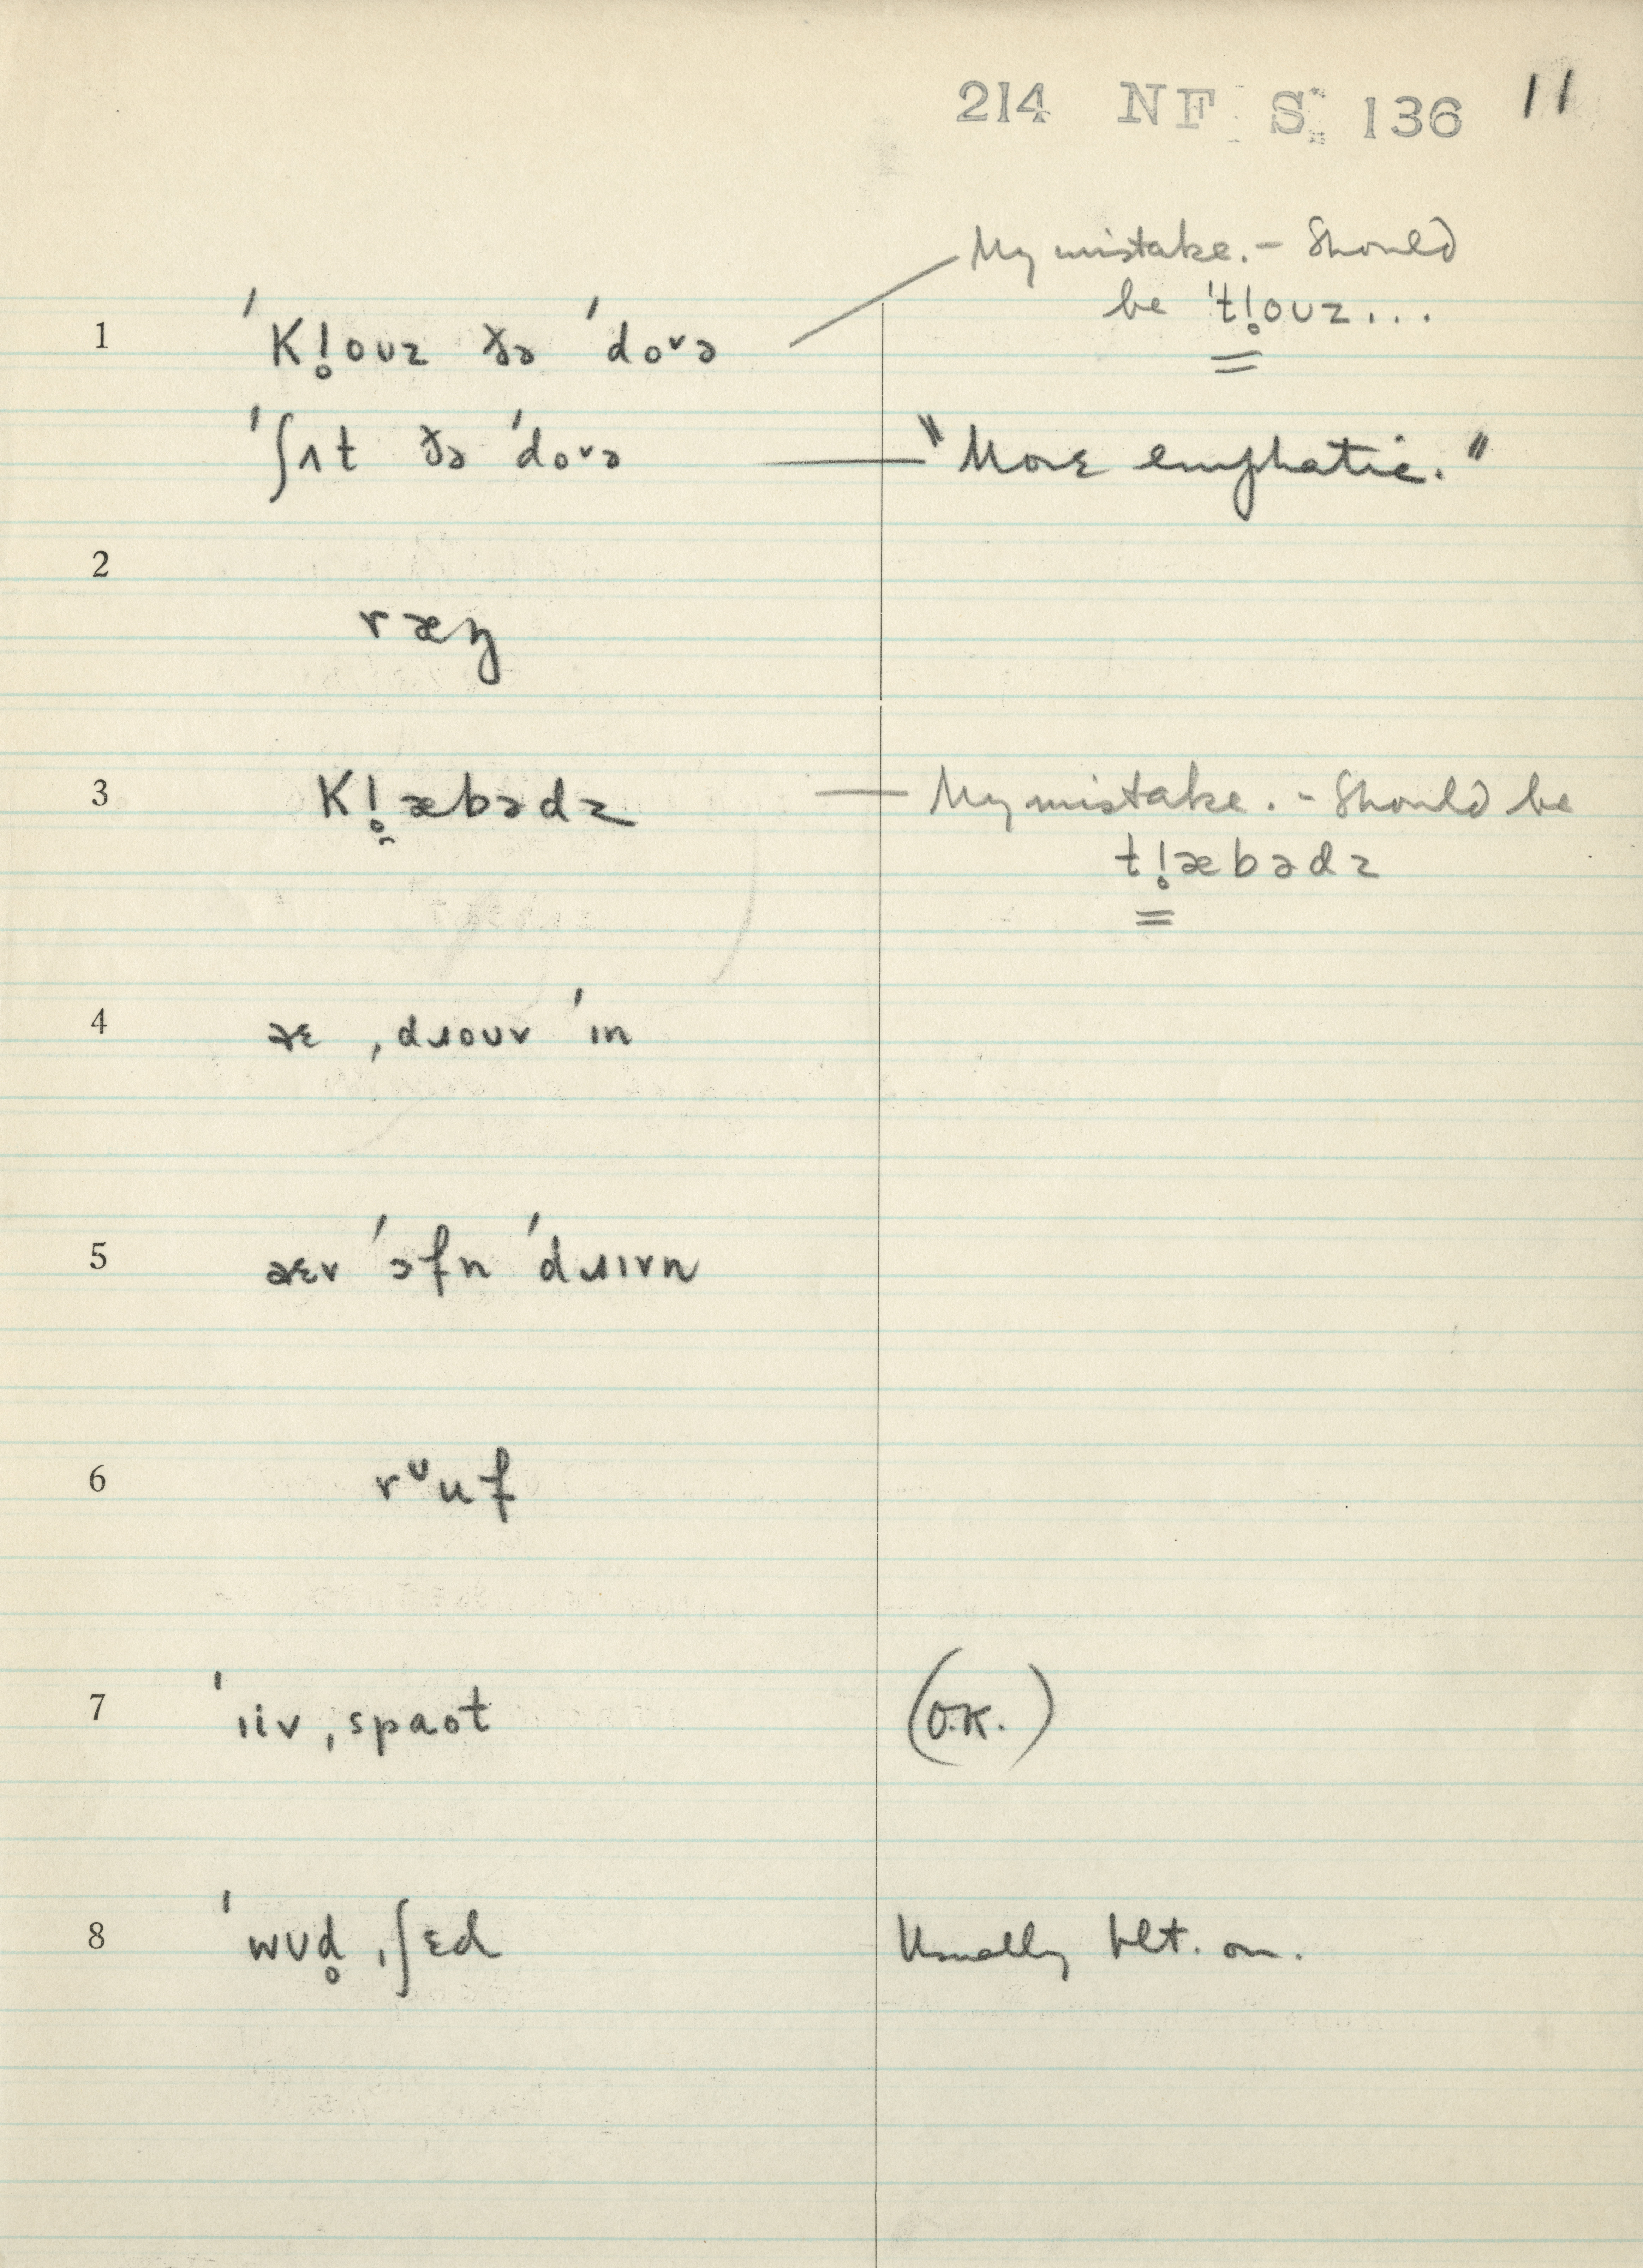 214 NF S 136 11
My mistake. – Should
be 't!̥ouz...
1 'K!̥ouz ðə 'doᵛə
'ʃʌt ðə 'doᵛə "More emphatic."
2
ræŋ
3 K!̥æbədz — My mistake. – Should be
t!̥æbədz
4 əɛ ˌdɹouv 'ɪn
5 əɛv 'ɔfn 'dɹɪvn
6 rᶷuf
7 'ɪiv ˌspaot (O.K.)
8 'wʊd̥ ˌʃɛd Usually blt. on.